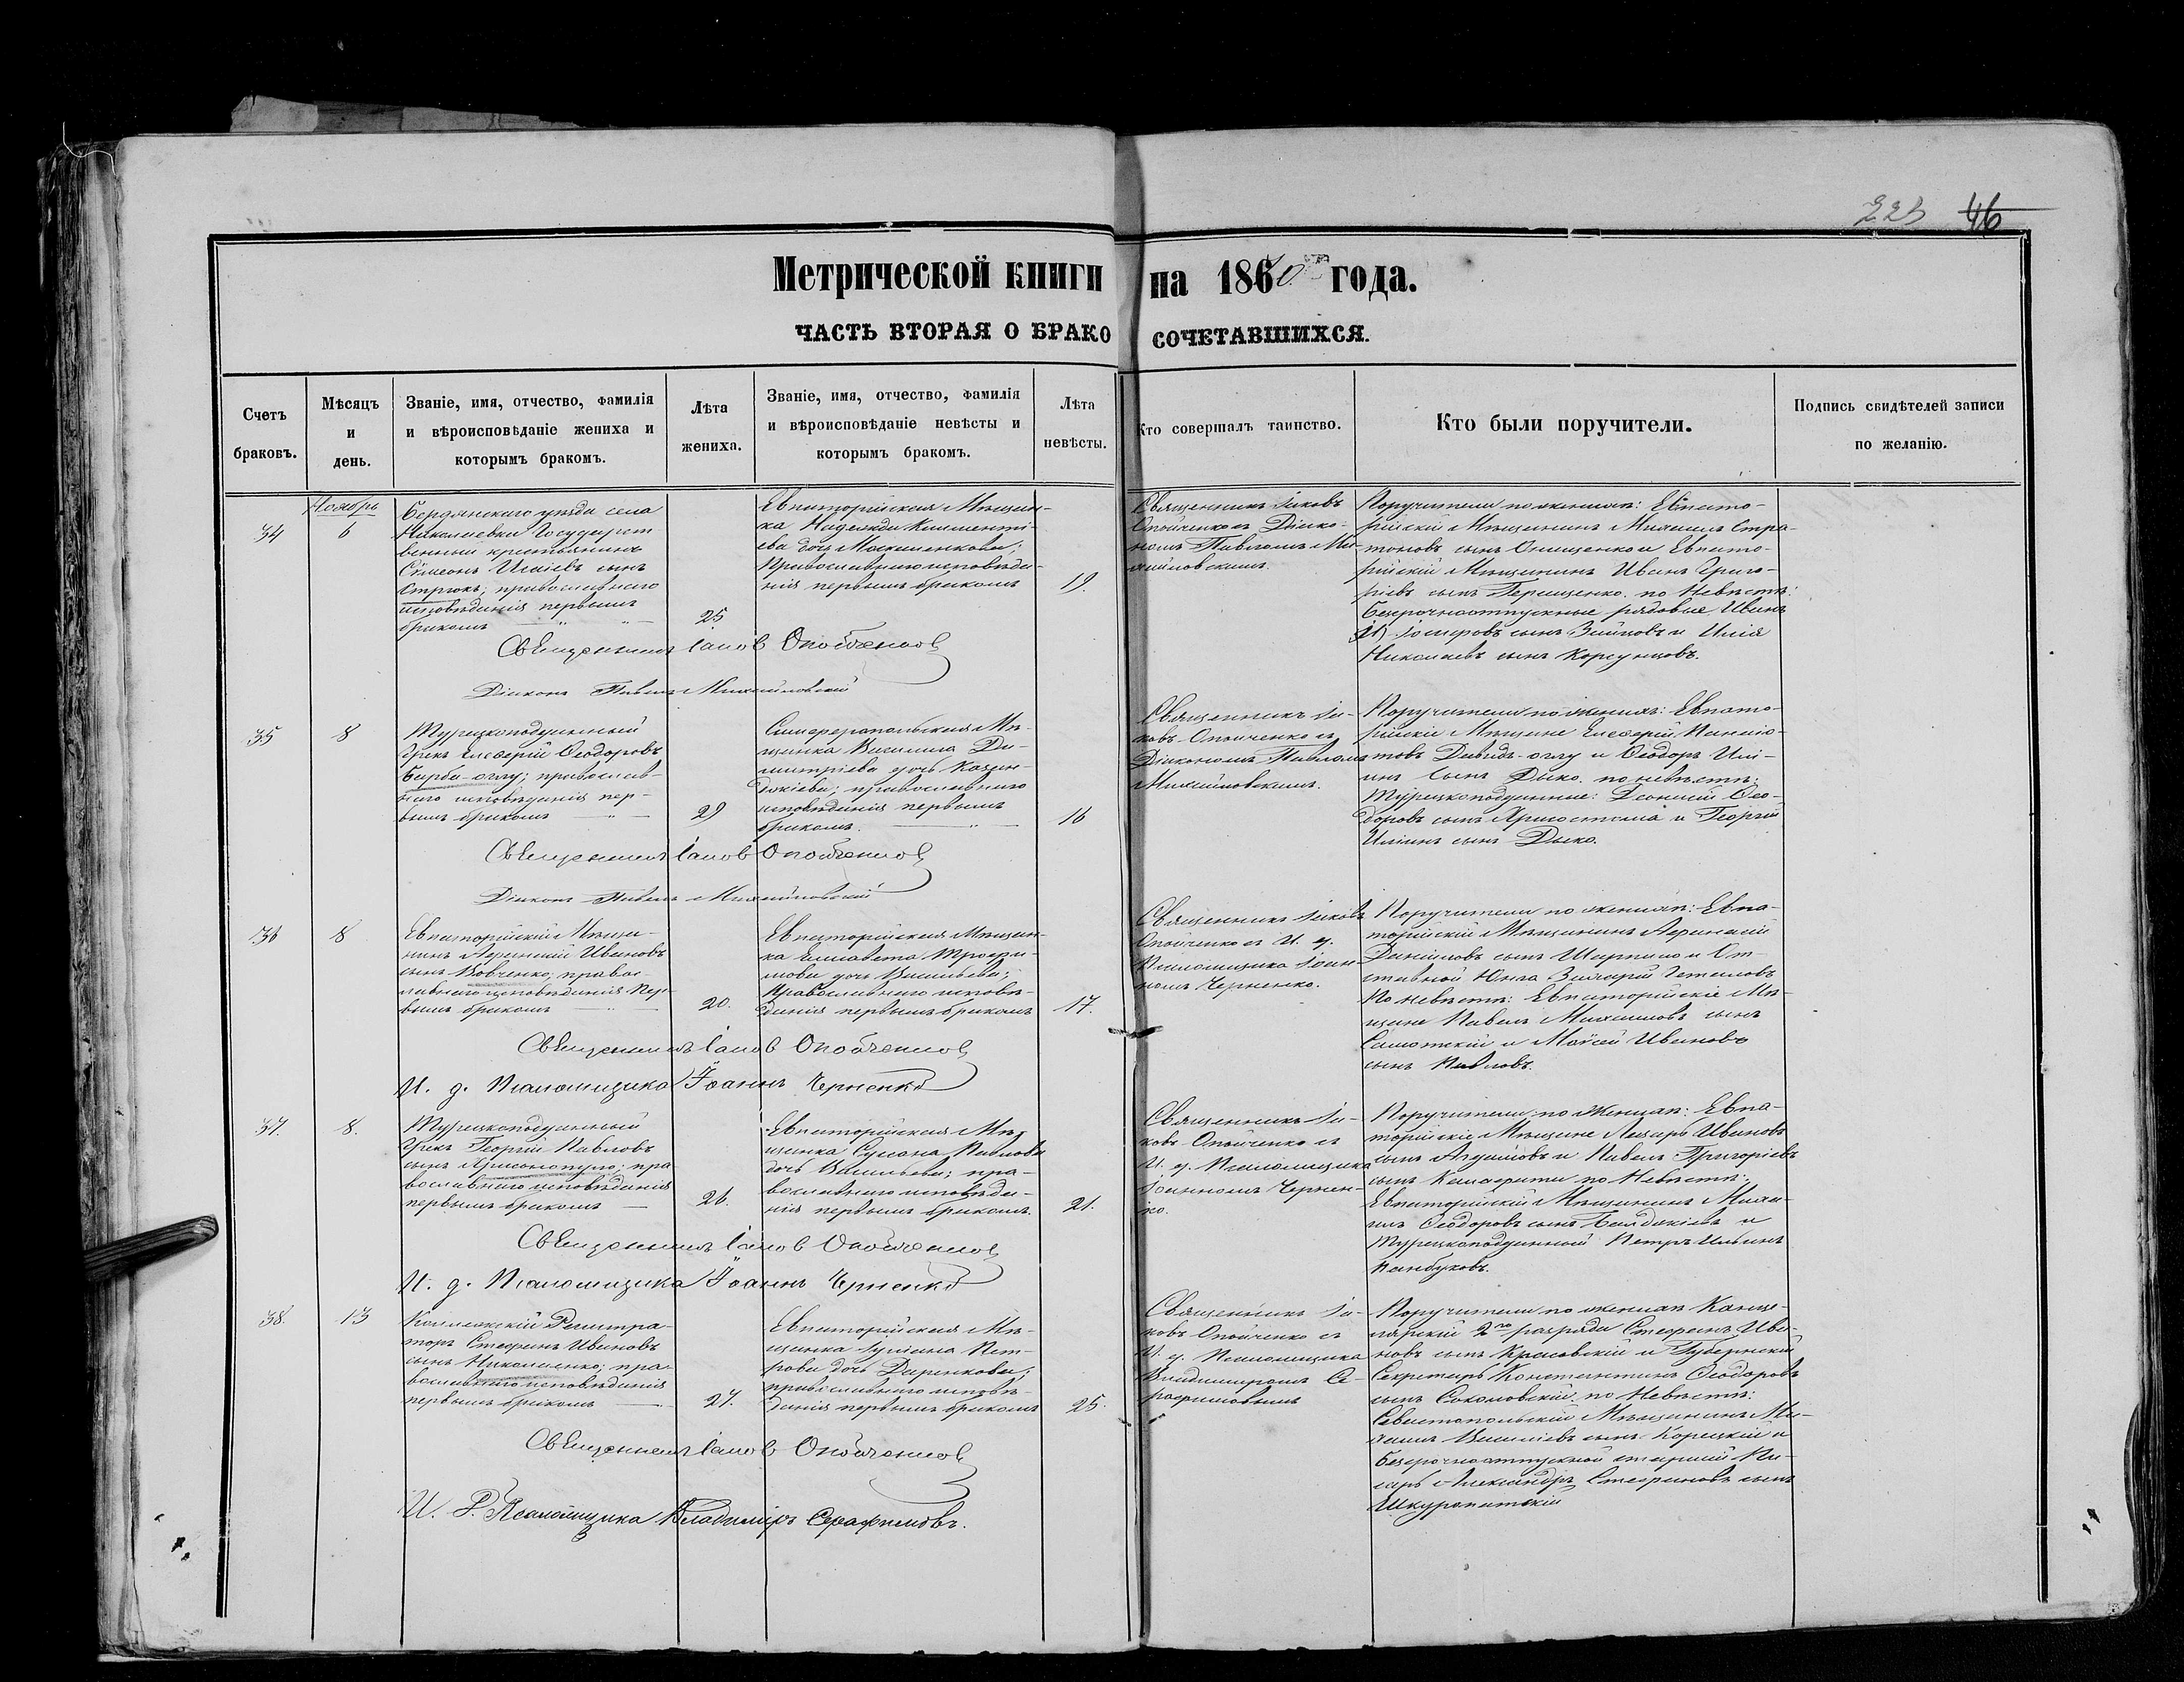 223 46
Метрической книги на 1870 года.
ЧАСТЬ ВТОРАЯ О БРАКОСОЧЕТАВШИХСЯ.
Счетъ браковъ.
Мѣсяцъ и день.
Званіе, имя, отчество, фамилія и вѣроисповѣданіе жениха и которымъ бракомъ.
Лѣта жениха.
Званіе, имя, отчество, фамилія и вѣроисповѣданіе невѣсты и которымъ бракомъ.
Лѣта невѣсты.
Кто совершалъ таинство.
Кто были поручители.
Подпись свидѣтелей записи по желанію.
Ноябрь
34
6
Бердянскаго уѣзда села
Николаевки Государст
венный крестьянинъ
Сѵмеонъ Исаіевъ сынъ
Стрюкъ; православнаго
исповѣданія первымъ
бракомъ
25
Евпаторійская Мѣщан-
ка Надежда Климента-
ева дочь Москаленкова;
Православнаго исповѣда-
нія первымъ бракомъ
19.
Священникъ Іаковъ
Опойченко съ Діако-
номъ Павломъ Ми-
хайловскимъ.
Поручители по женихѣ: Евпато-
рійскій Мѣщанинъ Михаилъ Стра-
тоновъ сынъ Онищенко и Евпато-
рійскій Мѣщанинъ Иванъ Григо-
ріевъ сынъ Геращенко. по Невѣстѣ:
Безсрочноотпускные рядовые Иванъ
Іосифовъ сынъ Зайцовъ и Илія
Николаевъ сынъ Корсунцовъ.
Священникъ Іаковъ Опойченко
Діаконъ Павелъ Михайловскій
35
8
Турецкоподданный
Грекъ Елевѳерій Ѳеодоровъ
Барба-оглу; православ-
наго исповѣданія пер-
вымъ бракомъ
29
Симферопольская Мѣ-
щанка Василиса Ди-
митріева дочь Казан-
джіева; православнаго
исповѣданія первымъ
бракомъ.
16
Священникъ Іа-
ковъ Опойченко съ
Діакономъ Павломъ
Михайловскимъ.
Поручители по женихѣ: Евпато-
рійскіе Мѣщане Елевѳерій Панаіо-
товъ Давидъ-оглу и Ѳеодоръ Илі-
инъ сынъ Дыко. по невѣстѣ:
Турецкоподданные: Леонтій Ѳео-
доровъ сынъ Христостома и Георгій
Иліинъ сынъ Дыко.
Священникъ Іаковъ Опойченко
Діаконъ Павелъ Михайловскій
36
8
Евпаторійскій Мѣща-
нинъ Аѳанасій Ивановъ
сынъ Вовченко; правос-
лавнаго исповѣданія пер-
вымъ бракомъ
20.
Евпаторійская Мѣщан-
ка Елисавета Трофи-
мова дочь Васильева;
Православнаго исповѣ-
данія первымъ бракомъ
17.
Священникъ Іаковъ
Опойченко съ И. д.
Псаломщика Іоан-
номъ Черненко.
Поручители по женихѣ: Евпа-
торійскій Мѣщанинъ Аѳанасій
Даниловъ сынъ Шарпило и От-
ставной Юнга Захарій
По невѣстѣ: Евпаторійскіе Мѣ-
щане Павелъ Михаиловъ сынъ
и Моисей Ивановъ
сынъ Павловъ.
Священникъ Іаковъ Опойченко
И. д. Псаломщика Іоаннъ Черненко
37.
8.
Турецкоподданный
Грекъ Георгій Павловъ
сынъ Хрисонопуло; пра
вославнаго исповѣданія
первымъ бракомъ
26.
Евпаторійская Мѣ-
щанка Сусана Павлова
дочь Васильева; пра-
вославнаго исповѣда-
нія первымъ бракомъ.
21.
Священникъ Іа-
ковъ Опойченко съ
И. д. Псаломщика
Іоанномъ Чернен-
ко.
Поручители по Женихѣ: Евпа-
торійскіе Мѣщане Лазарь Ивановъ
сынъ и Павелъ Григоріевъ
сынъ по Невѣстѣ:
Евпаторійскій Мѣщанинъ Миха-
илъ Ѳеодоровъ сынъ и
Турецкоподданный Петръ Ильинъ
Панбуковъ.
Священникъ Іаковъ Опойченко
И. д. Псаломщика Іоаннъ Черненко
38.
13
Коллежскій Регистра-
торъ Стефанъ Ивановъ
сынъ Николаенко; пра-
вославнаго исповѣданія
первымъ бракомъ
27.
Евпаторійская Мѣ-
щанка Іуліана Пет-
рова дочь Даренкова;
православнаго исповѣ-
данія первымъ бракомъ
25.
Священникъ Іа-
ковъ Опойченко съ
И. д. Псаломщика
Владимиромъ Се-
рафимовымъ
Поручители по женихѣ Канце-
лярскій 2го разряда Стефанъ Ива-
новъ сынъ Красовскій и Губернскій
Секретарь Константинъ Ѳеодоровъ
сынъ Соколовскій. по Невѣстѣ:
Севастопольскій Мѣщанинъ Ми-
хаилъ Василіевъ сынъ Корецкій и
Безсрочноотпускной старшій Пи-
сарь Александръ Стефановъ сынъ
Шкуропатскій
Священникъ Іаковъ Опойченко
И. Д. Псаломщика Владиміръ Серафимовъ.